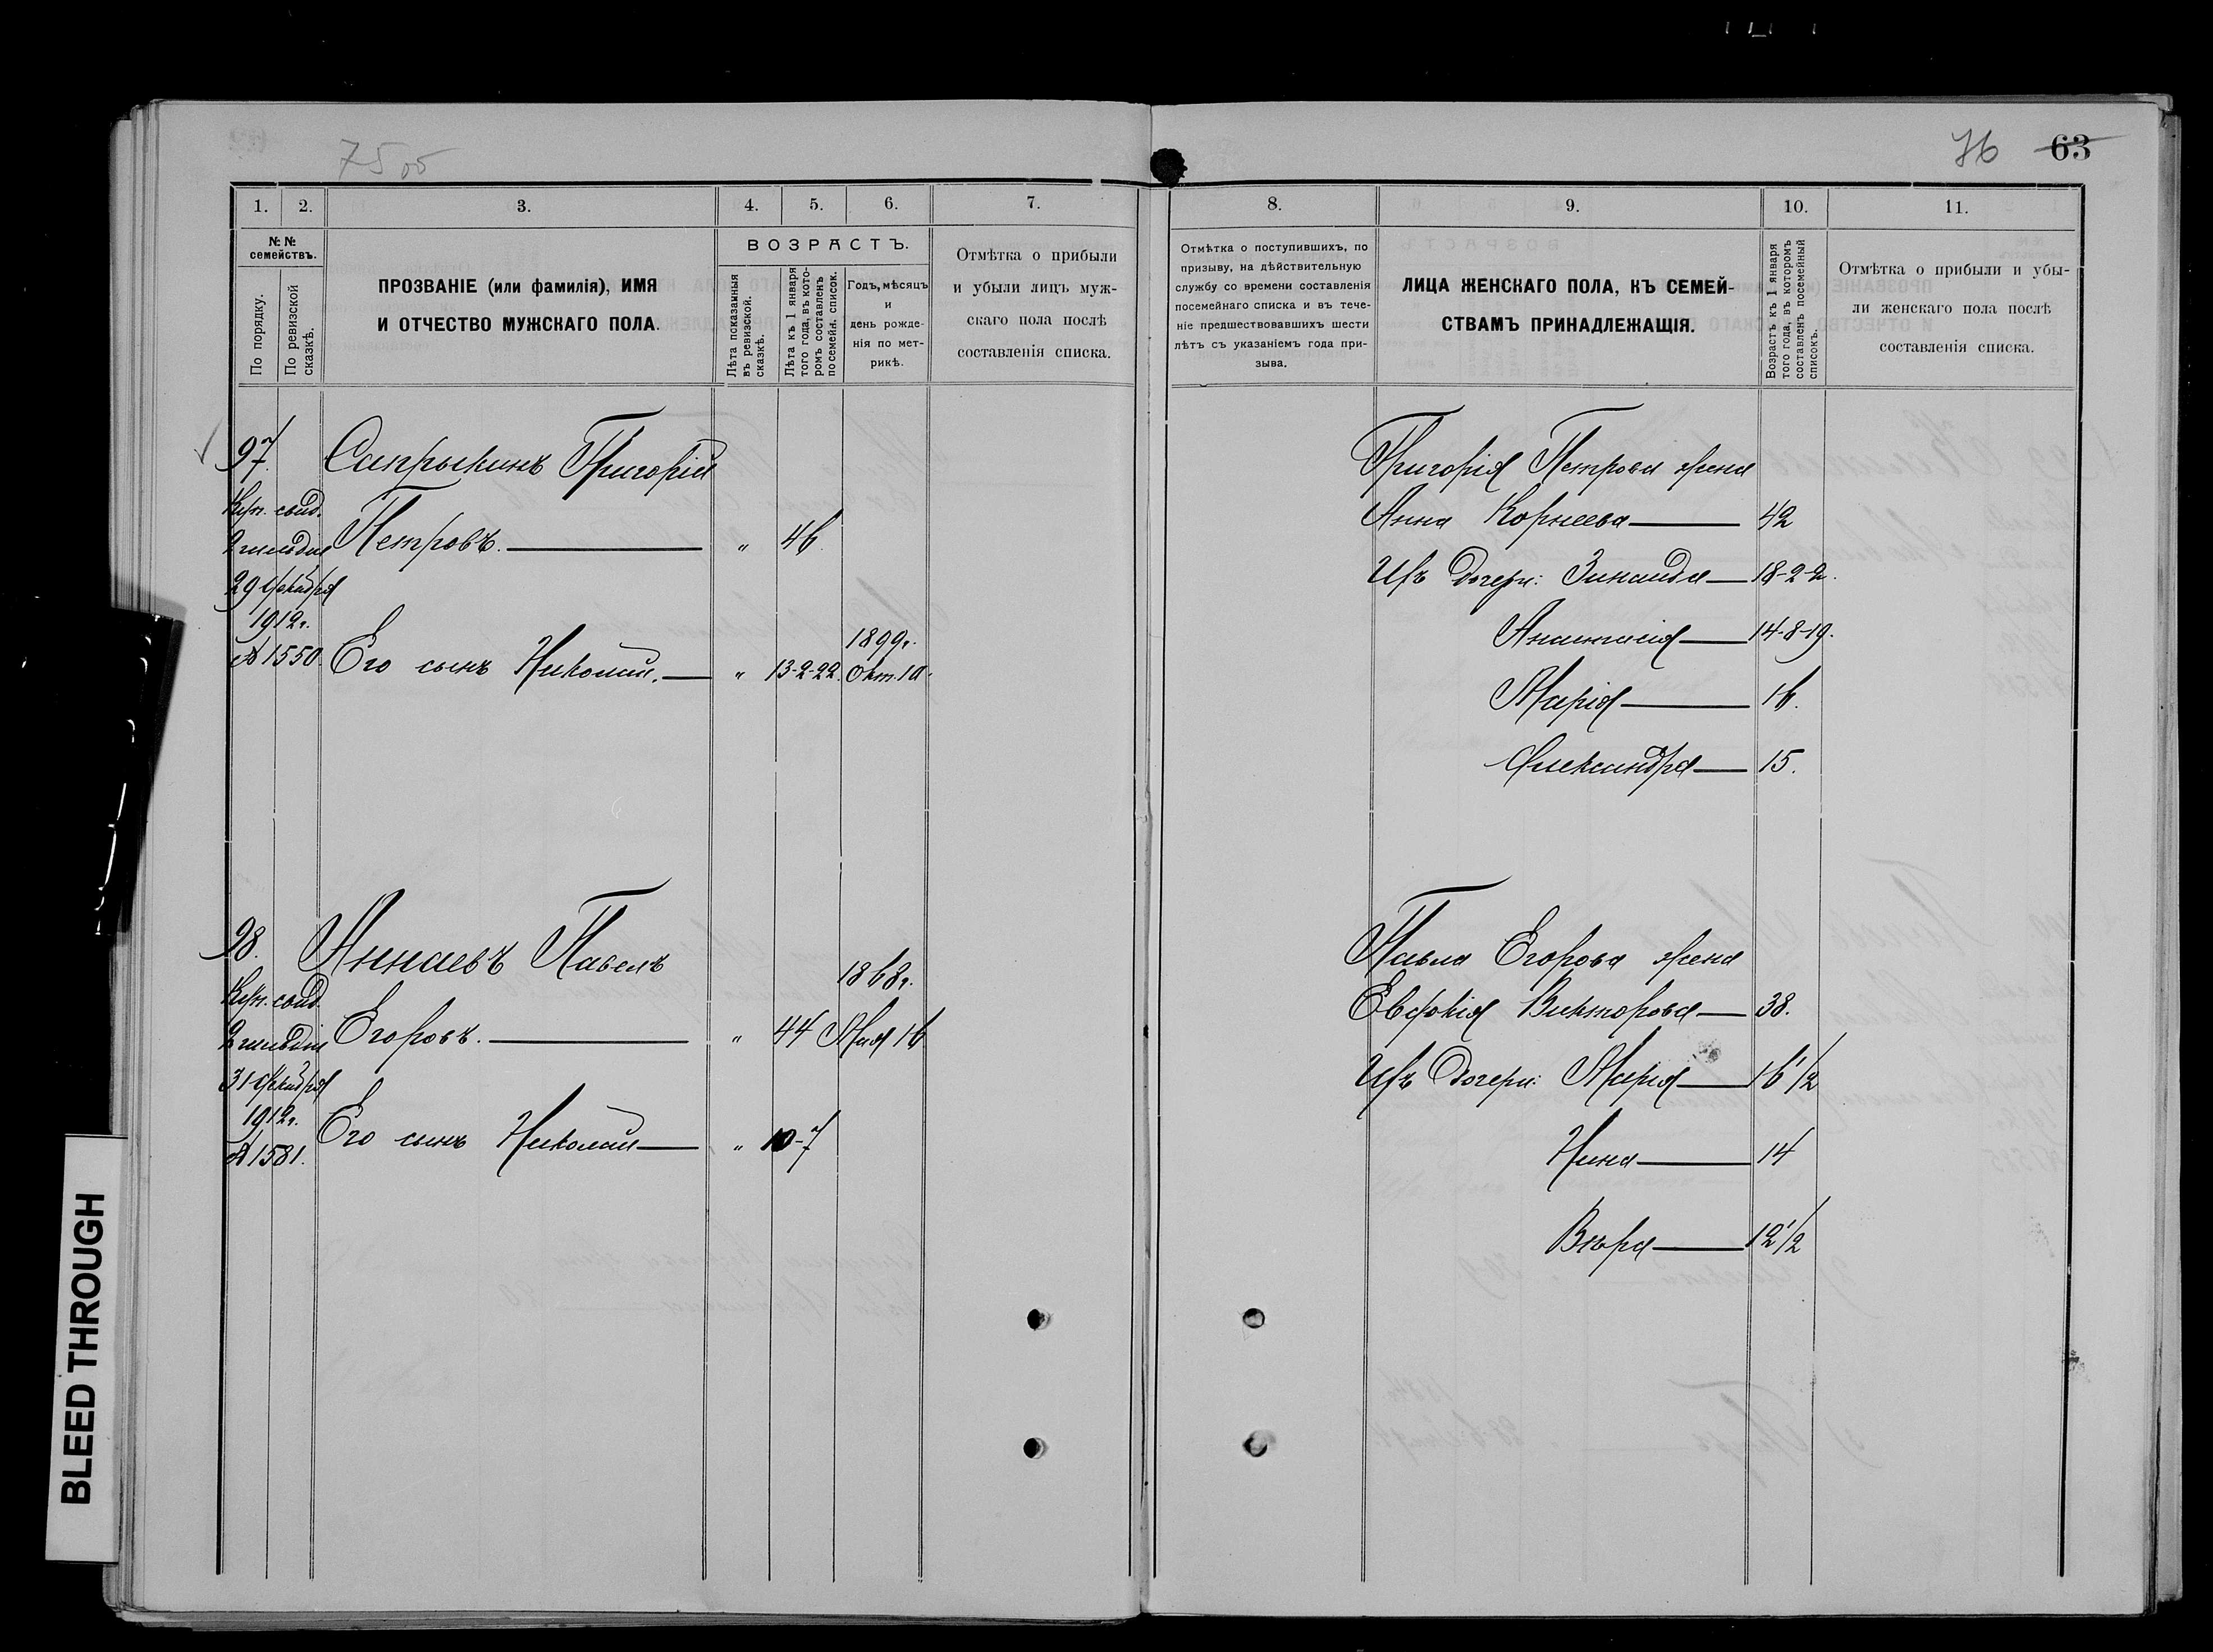 75 об
76 63
1. 2. 3. 4. 5. 6. 7.
№ № семействъ.
По порядку.
По ревизской сказкѣ.
ПРОЗВАНІЕ (или фамилія), ИМЯ
И ОТЧЕСТВО МУЖСКАГО ПОЛА.
ВОЗРАСТЪ.
Лѣта показанныя
въ ревизской.
сказкѣ.
Лѣта къ 1 января
того года, въ кото-
ромъ составленъ
посемейн. списокъ.
Годъ, мѣсяцъ
и
день рожде-
нія по мет-
рикѣ.
Отмѣтка о прибыли
и убыли лицъ муж-
скаго пола послѣ
составленія списка.
97. Сапрыкинъ Григорій
Куп. свид.
2 гильдіи Петровъ. — " 46
29 Декабря
1912 г.
№ 1550. Его сынъ Николай. — " 13-2-22. 1899 г. Окт. 10.
98. Аннаевъ Павелъ
Куп. свид. 1868 г.
2 гильдіи Егоровъ. — " 44 Мая 16
31 Декабря
1912 г.
№ 1581. Его сынъ Николай — " 10-7
8. 9. 10. 11.
Отмѣтка о поступившихъ, по
призыву, на дѣйствительную
службу со времени составленія
посемейнаго списка и въ тече-
ніе предшествовавшихъ шести
лѣтъ съ указаніемъ года при-
зыва.
ЛИЦА ЖЕНСКАГО ПОЛА, КЪ СЕМЕЙ-
СТВАМЪ ПРИНАДЛЕЖАЩІЯ.
Возрастъ къ 1 января
того года, въ которомъ
составленъ посемейный
списокъ.
Отмѣтка о прибыли и убы-
ли женскаго пола послѣ
составленія списка.
Григорія Петрова жена
Анна Корнеева — 42
Ихъ дочери: Зинаида — 18-2-2.
Анастасія — 14-8-19.
Марія — 16.
Александра — 15.
Павла Егорова жена
Евдокія Викторова — 38.
Ихъ дочери: Марія — 16 1/2
Нина — 14
Вѣра — 12 1/2
BLEED THROUGH